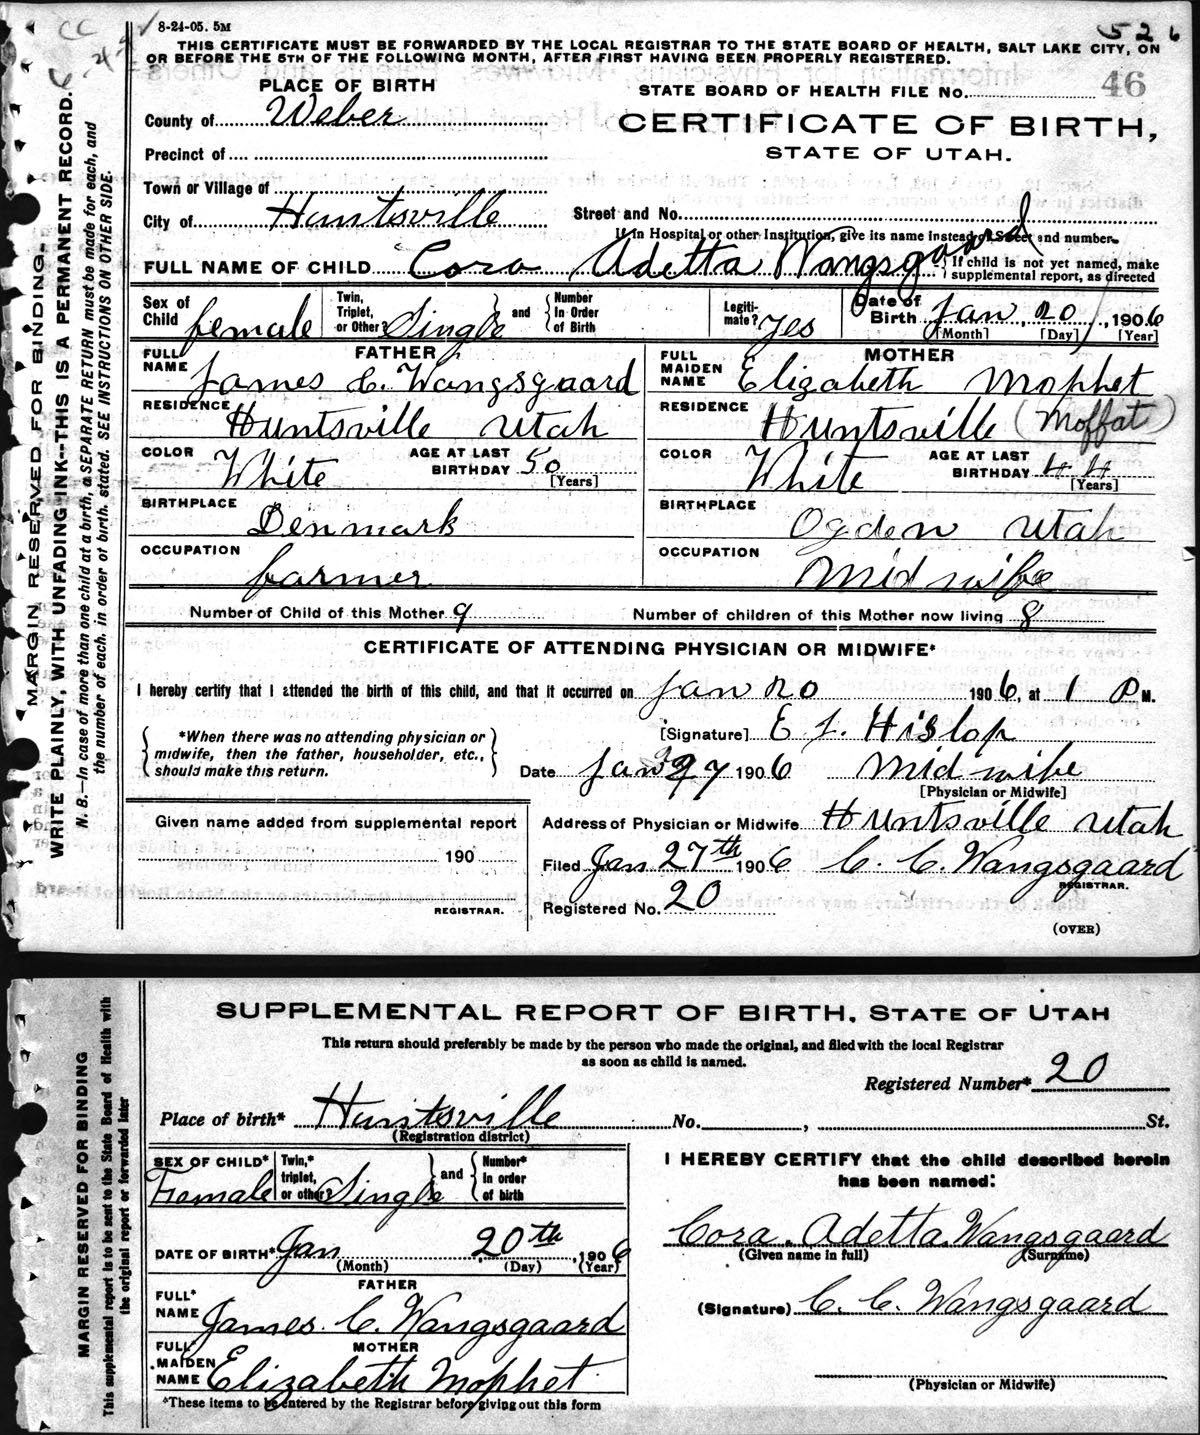 8-24-05. 5M
526
THIS CERTIFICATE MUST BE FORWARDED BY THE LOCAL REGISTRAR TO THE STATE BOARD OF HEALTH, SALT LAKE CITY, ON
OR BEFORE THE 5TH OF THE FOLLOWING MONTH, AFTER FIRST HAVING BEEN PROPERLY REGISTERED.
MARGIN RESERVED FOR BINDING.
WRITE PLAINLY, WITH UNFADING INK--THIS IS A PERMANENT RECORD.
N. B.—In case of more than one child at a birth, a SEPARATE RETURN must be made for each, and
the number of each. in order of birth. stated. SEE INSTRUCTIONS ON OTHER SIDE.
PLACE OF BIRTH
STATE BOARD OF HEALTH FILE No. 46
County of Weber
CERTIFICATE OF BIRTH,
Precinct of
STATE OF UTAH.
Town or Village of
City of Huntsville Street and No.
If in Hospital or other Institution, give its name instead of Street and number.
FULL NAME OF CHILD Cora Adetta Wangsgaard { If child is not yet named, make
supplemental report, as directed
Sex of Child female Twin, Triplet, or Other? Single and { Number In Order of Birth Legiti-mate? yes Date of Birth Jan 20, 1906
[Month] [Day] [Year]
FATHER MOTHER
FULL NAME James C. Wangsgaard FULL MAIDEN NAME Elizabeth Mophet
RESIDENCE Huntsville Utah RESIDENCE Huntsville (Moffat)
COLOR White AGE AT LAST BIRTHDAY 50 [Years] COLOR White AGE AT LAST BIRTHDAY 44 [Years]
BIRTHPLACE Denmark BIRTHPLACE Ogden Utah
OCCUPATION farmer OCCUPATION Mid wife
Number of Child of this Mother 9 Number of children of this Mother now living 8
CERTIFICATE OF ATTENDING PHYSICIAN OR MIDWIFE*
I hereby certify that I attended the birth of this child, and that it occurred on Jan 20 1906, at 1 P M.
{ *When there was no attending physician or
midwife, then the father, householder, etc.,
should make this return. }
[Signature] E. J. Hislop
Date Jan 27 1906 Mid wife
[Physician or Midwife]
Given name added from supplemental report
190
REGISTRAR.
Address of Physician or Midwife Huntsville Utah
Filed Jan 27th 1906 C. C. Wangsgaard
REGISTRAR.
Registered No. 20
(OVER)
MARGIN RESERVED FOR BINDING
This supplemental report is to be sent to the State Board of Health with
the original report or forwarded later
SUPPLEMENTAL REPORT OF BIRTH, STATE OF UTAH
This return should preferably be made by the person who made the original, and filed with the local Registrar
as soon as child is named.
Registered Number* 20
Place of birth* Huntsville No. , St.
(Registration district)
SEX OF CHILD* Female Twin,* triplet, or other? Single } and { Number* In order of birth
DATE OF BIRTH* Jan 20th, 1906
(Month) (Day) (Year)
FATHER
FULL* NAME James. C. Wangsgaard
MOTHER
FULL* MAIDEN NAME Elizabeth Mophet
*These items to be entered by the Registrar before giving out this form
I HEREBY CERTIFY that the child described herein
has been named:
Cora. Adetta. Wangsgaard
(Given name in full) (Surname)
(Signature) C. C. Wangsgaard
(Physician or Midwife)